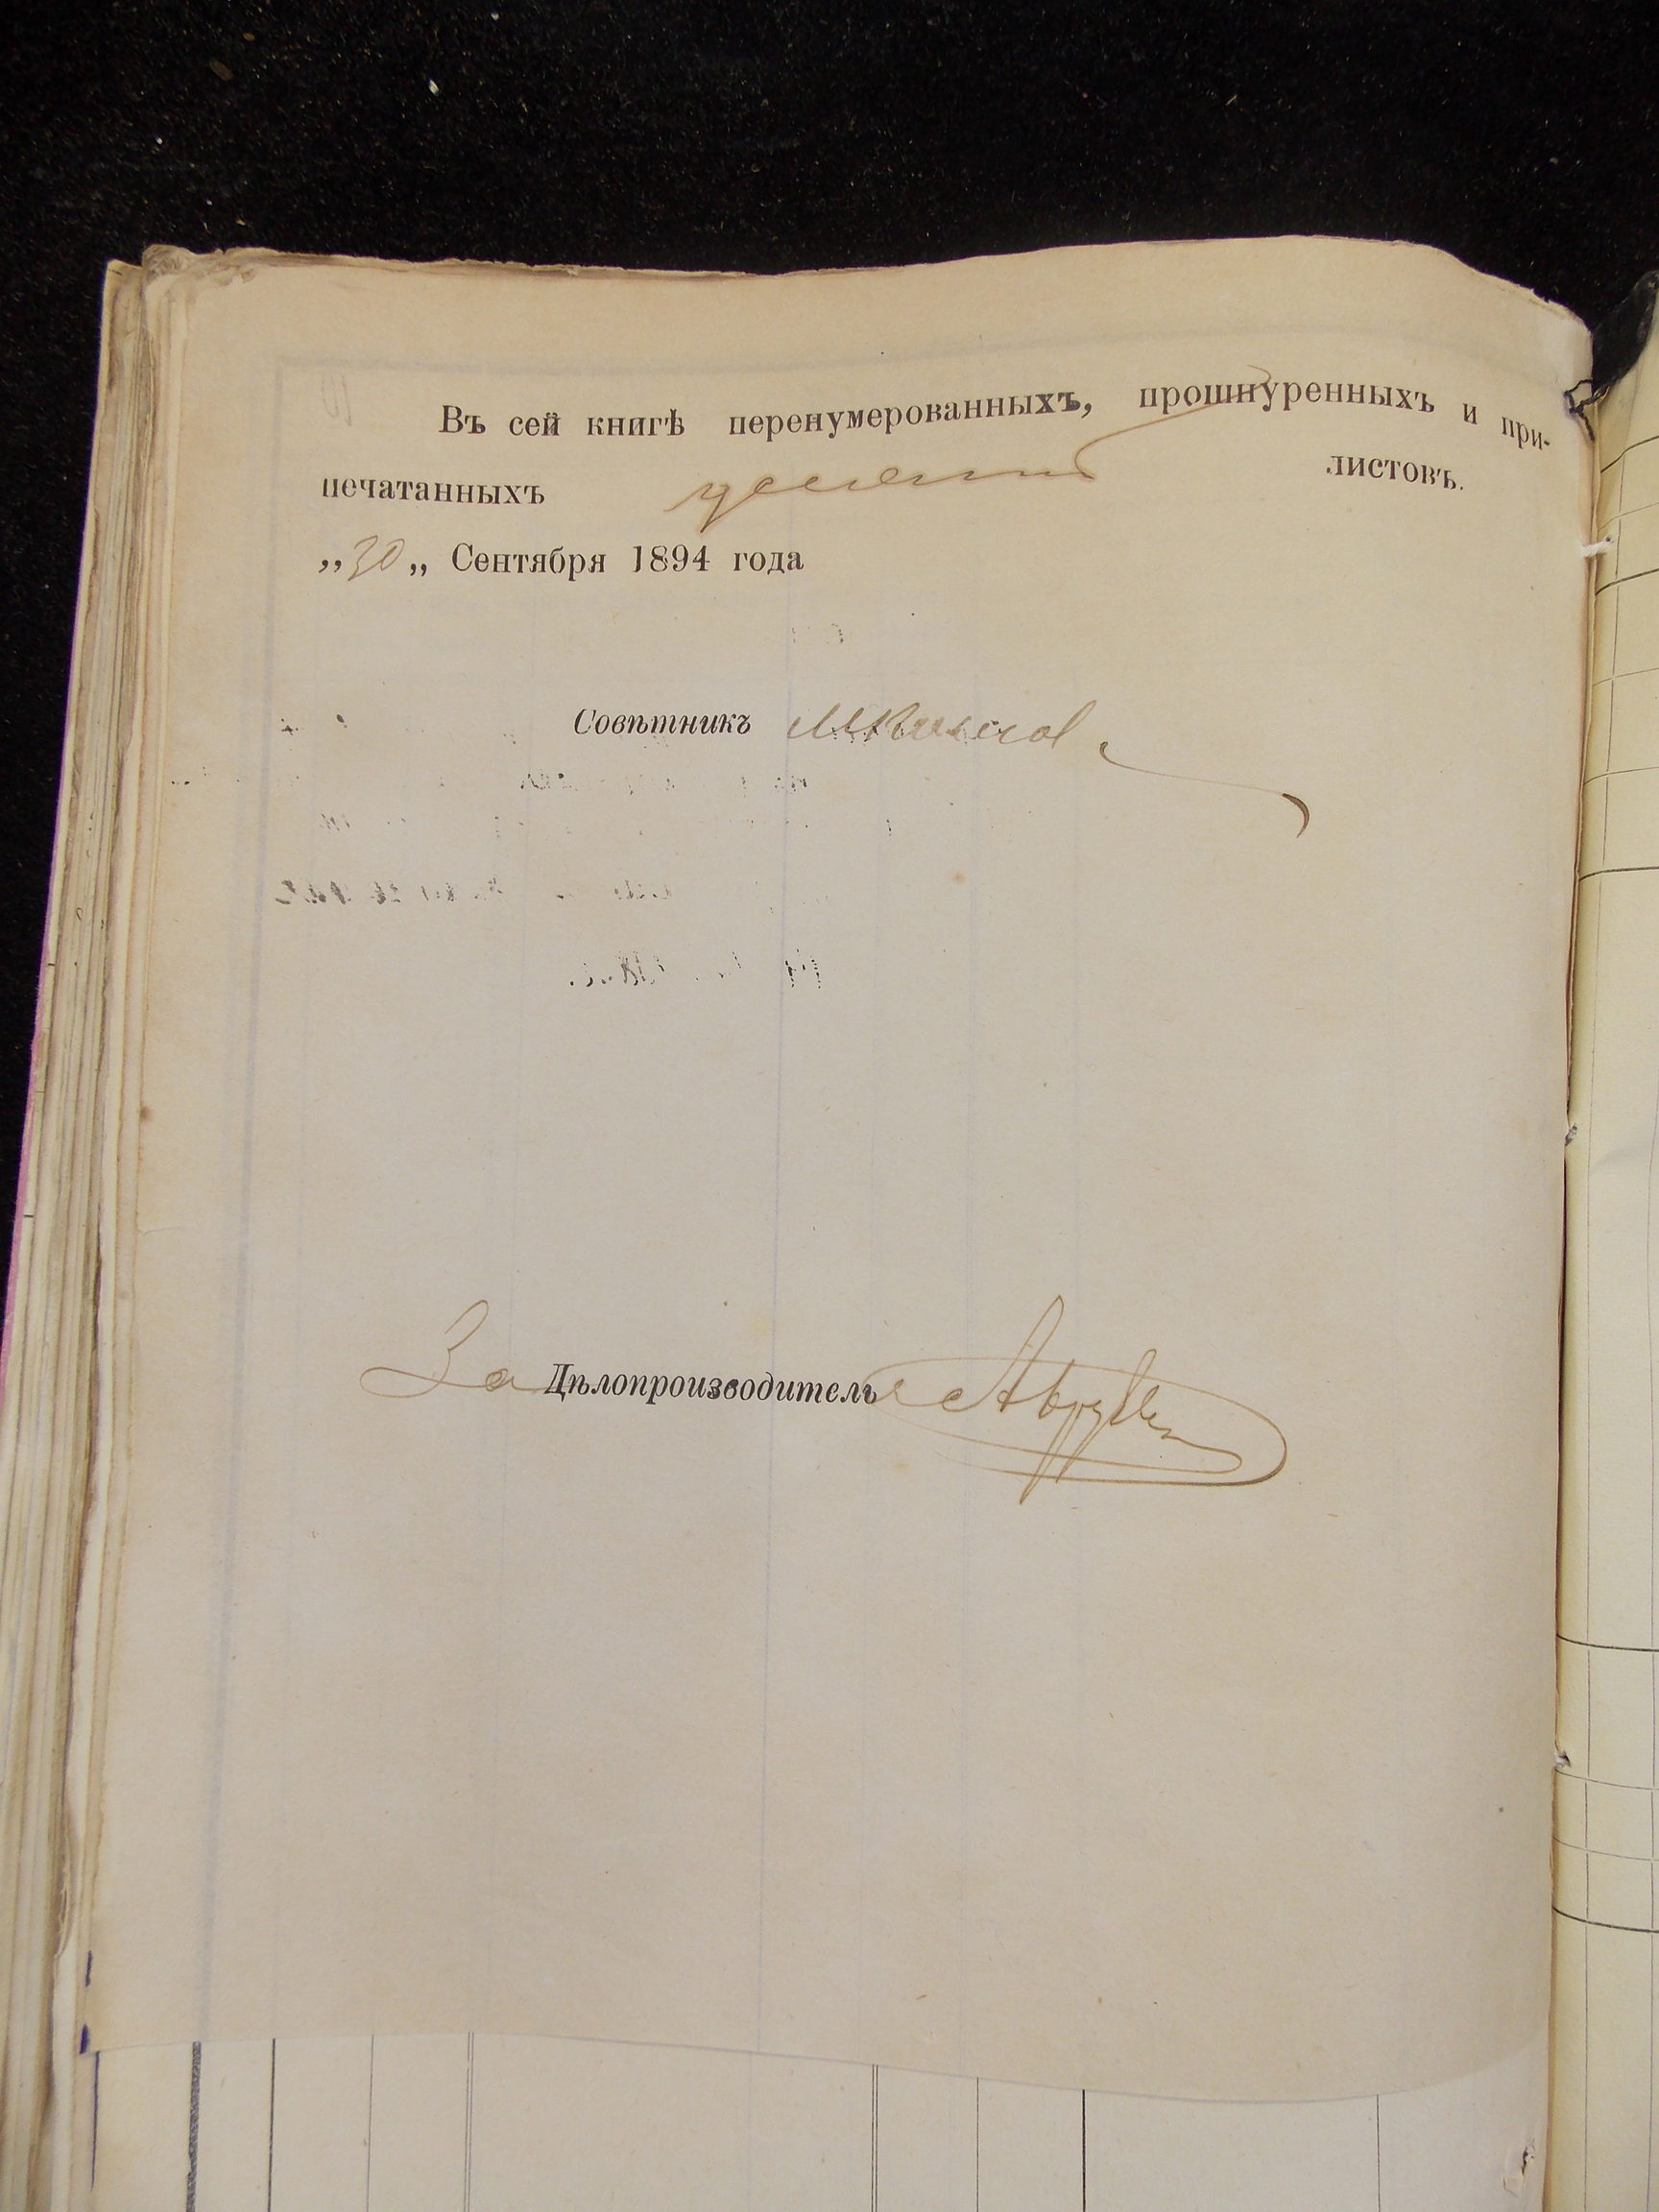 Въ сей книгѣ перенумерованныхъ, прошнуренныхъ и при-
печатанныхъ листовъ.
„30„ Сентября 1894 года
Совѣтникъ
За Дѣлопроизводитель